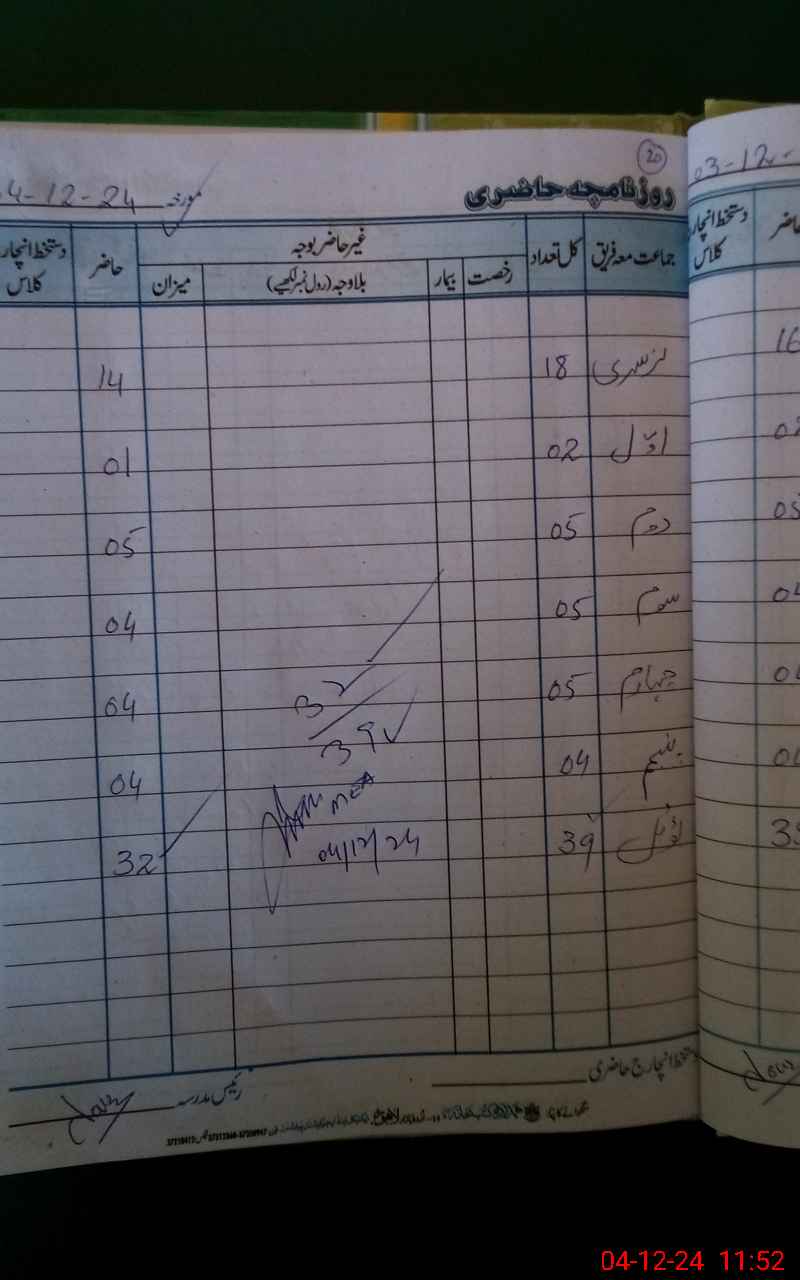 20
روزنامچہ حاضری
مورخہ 4-12-24
جماعت معہ فریق کل تعداد غیر حاضر بوجہ حاضر دستخط انچارج کلاس
رخصت بیمار بلاوجہ (رول نمبر لکھیے) میزان
نرسری 18 14
اوّل 02 01
دوم 05 05
سوم 05 04
چہارم 05 04
پنجم 04 04
ٹوٹل 39 32
32
39
MEA
04/12/24
دستخط انچارج حاضری
رئیس مدرسہ
03-12-
حاضر دستخط انچارج کلاس
16
02
05
04
04-12-24 11:52